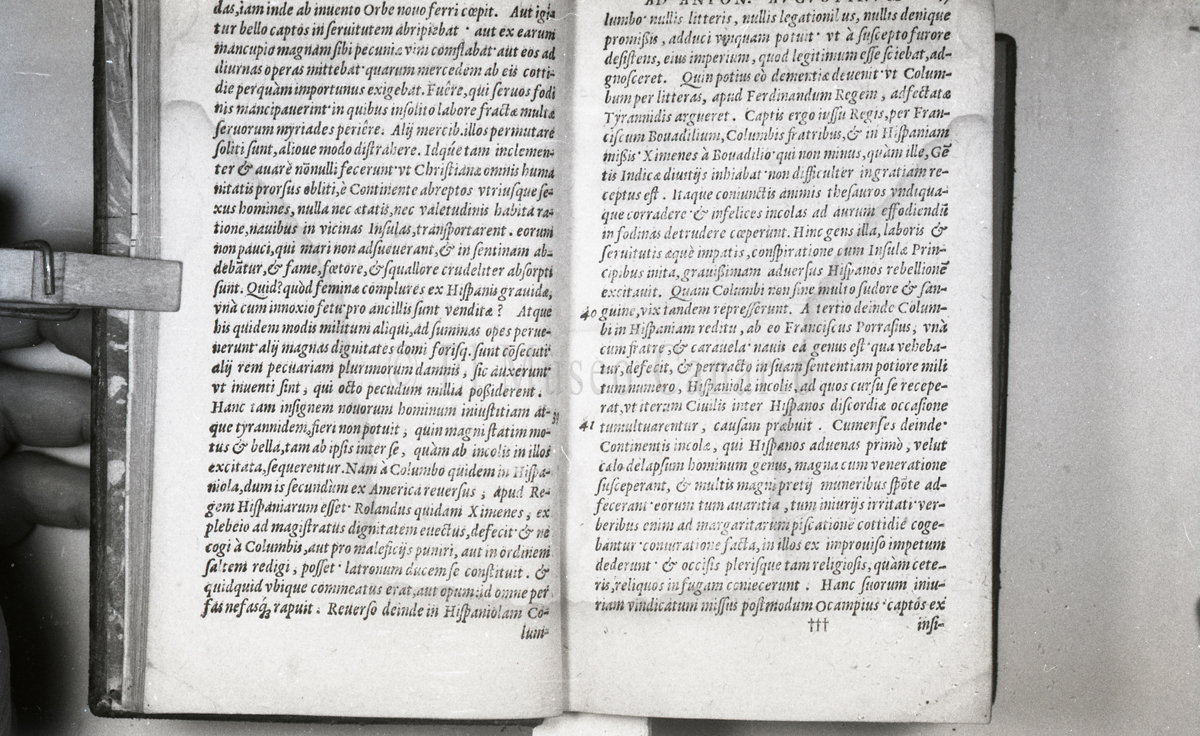 das, iam inde ab inuento Orbe nouo ferri cœpit. Aut igi-
tur bello captos in seruitutem abripiebat · aut ex earum
mancupio magnam sibi pecuniæ vim conflabat· aut eos ad
diurnas operas mittebat· quarum mercedem ab eis cotti-
die perquàm importunus exigebat. Fuêre, qui seruos fodi
nis mancipauerint· in quibus insolito labore fractæ multæ
seruorum myriades periêre. Alij mercib. illos permutare
soliti sunt, alioue modo distrahere. Idq́ue tam inclemen-
ter & auarè nõnulli fecerunt· vt Christianæ omnis huma
nitatis prorsus obliti, è Continente abreptos vtriusque se-
xus homines, nulla nec ætatis, nec valetudinis habita ra-
tione, nauibus in vicinas Insulas, transportarent. eorum
non pauci, qui mari non adsueuerant, & in sentinam ab-
debãtur, & fame, fœtore, & squallore crudeliter absorpti
sunt. Quid? quòd feminæ complures ex Hispanis grauidæ,
vnà cum innoxio fetu pro ancillis sunt venditæ? Atque
his quidem modis militum aliqui, ad summas opes perue-
nerunt· alij magnas dignitates domi forisq. sunt cõsecuti·
alij rem pecuariam plurimorum damnis, sic auxerunt·
vt inuenti sint, qui octo pecudum millia possiderent.
Hanc tam insignem nouorum hominum iniustitiam at-
39
que tyrannidem, fieri non potuit, quin magni statim mo-
tus & bella, tam ab ipsis inter se, quàm ab incolis in illos
excitata, sequerentur. Nam à Columbo quidem in Hispa-
niola, dum is secundùm ex America reuersus, apud Re-
gem Hispaniarum esset· Rolandus quidam Ximenes, ex
plebeio ad magistratus dignitatem euectus, defecit· & ne
cogi à Columbis, aut pro maleficijs puniri, aut in ordinem
saltem redigi, posset· latronum ducem se constituit. &
quidquid vbique commeatus erat, aut opum: id omne per
fas nefasq́ rapuit. Reuerso deinde in Hispaniolam Co-
lum-
AD ANTON. AVGVSTINVM
lumbo· nullis litteris, nullis legationibus, nullis denique
promissis, adduci vnquam potuit· vt à suscepto furore
desistens, eius imperium, quod legitimum esse sciebat, ad-
gnosceret. Quin potius eò dementiæ deuenit· vt Colum-
bum per litteras, apud Ferdinandum Regem, adfectatæ
Tyrannidis argueret. Captis ergo iussu Regis, per Fran-
ciscum Bouadilium, Columbis fratribus, & in Hispaniam
missis· Ximenes à Bouadilio· qui non minus, quàm ille, Gẽ
tis Indicæ diuitijs inhiabat· non difficulter in gratiam re-
ceptus est. Itaque coniunctis animis thesauros vndiqua-
que corradere· & infelices incolas ad aurum effodiendũ
in fodinas detrudere cœperunt. Hinc gens illa, laboris &
seruitutis æquè impatis, conspiratione cum Insulæ Prin-
cipibus inita, grauissimam aduersus Hispanos rebellionẽ
excitauit. Quam Columbi non sine multo sudore & san-
40 guine, vix tandem represserunt. A tertio deinde Colum-
bi in Hispaniam reditu, ab eo Franciscus Porrasius, vnà
cum fratre, & carauela· nauis ea genus est· qua veheba-
tur, defecit, & pertracto in suam sententiam potiore mili
tum numero, Hispaniolæ incolis, ad quos cursu se recepe-
rat, vt iterum Ciuilis inter Hispanos discordiæ occasione
41 tumultuarentur, causam præbuit. Cumenses deinde·
Continentis incolæ, qui Hispanos aduenas primò, velut
cælo delapsum hominum genus, magna cum veneratione
susceperant, & multis magni pretij muneribus spõte ad-
fecerant· eorum tum auaritia, tum iniurijs irritati· ver-
beribus enim ad margaritarum piscationẽ cottidie coge-
bantur· coniuratione facta, in illos ex improuiso impetum
dederunt· & occisis plerisque tam religiosis, quàm cete-
ris, reliquos in fugam coniecerunt. Hanc suorum iniu-
riam vindicatum missus postmodum Ocampius· captos ex
††† insi-
Museo